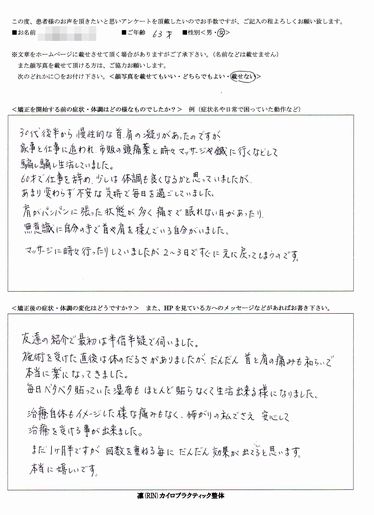 この度、患者様のお声を頂きたいと思いアンケートを頂戴したいのでお手数ですが、ご記入の程よろしくお願い致します。
■お名前 ■ご年齢 63才 ■性別<男・女>
※文章をホームページに載せさせて頂く場合がありますがご了承下さい。(名前などは載せません)
また顔写真を載せて頂ける方は、ご協力お願いします。
次のどれかに○をお付け下さい。<顔写真を載せてもいい・どちらでもよい・載せない>
<矯正を開始する前の症状・体調はどの様なものでしたか?> 例(症状名や日常で困っていた動作など)
30代後半から慢性的な首、肩の凝りがあったのですが
家事と仕事に追われ、市販の頭痛薬と時々マッサージや鍼に行くなどして
騙し騙し生活していました。
60才で仕事を辞め、少しは体調も良くなるかと思っていましたが、
あまり変わらず不安な気持で毎日を過ごしていました。
肩がパンパンに張った状態が多く痛さで眠れない日があったり、
無意識に自分の手で首や肩を揉んでいる自分がいました。
マッサージに時々行ったりしていましたが2~3日ですぐに元に戻ってしまうのです。
<矯正後の症状・体調の変化はどうですか?> また、HPを見ている方へのメッセージなどがあればお書き下さい。
友達の紹介で最初は半信半疑で伺いました。
施術を受けた直後は体のだるさがありましたが、だんだん首と肩の痛みも和らいで
本当に楽になってきました。
毎日ペタペタ貼っていた湿布もほとんど貼らなくて生活出来る様になりました。
治療自体もイメージした様な痛みもなく、怖がりの私でさえ安心して
治療を受ける事が出来ました。
まだ1ヶ月半ですが、回数を重ねる毎にだんだん効果が出てると思います。
本当に嬉しいです。
凛(RIN)カイロプラクティック整体